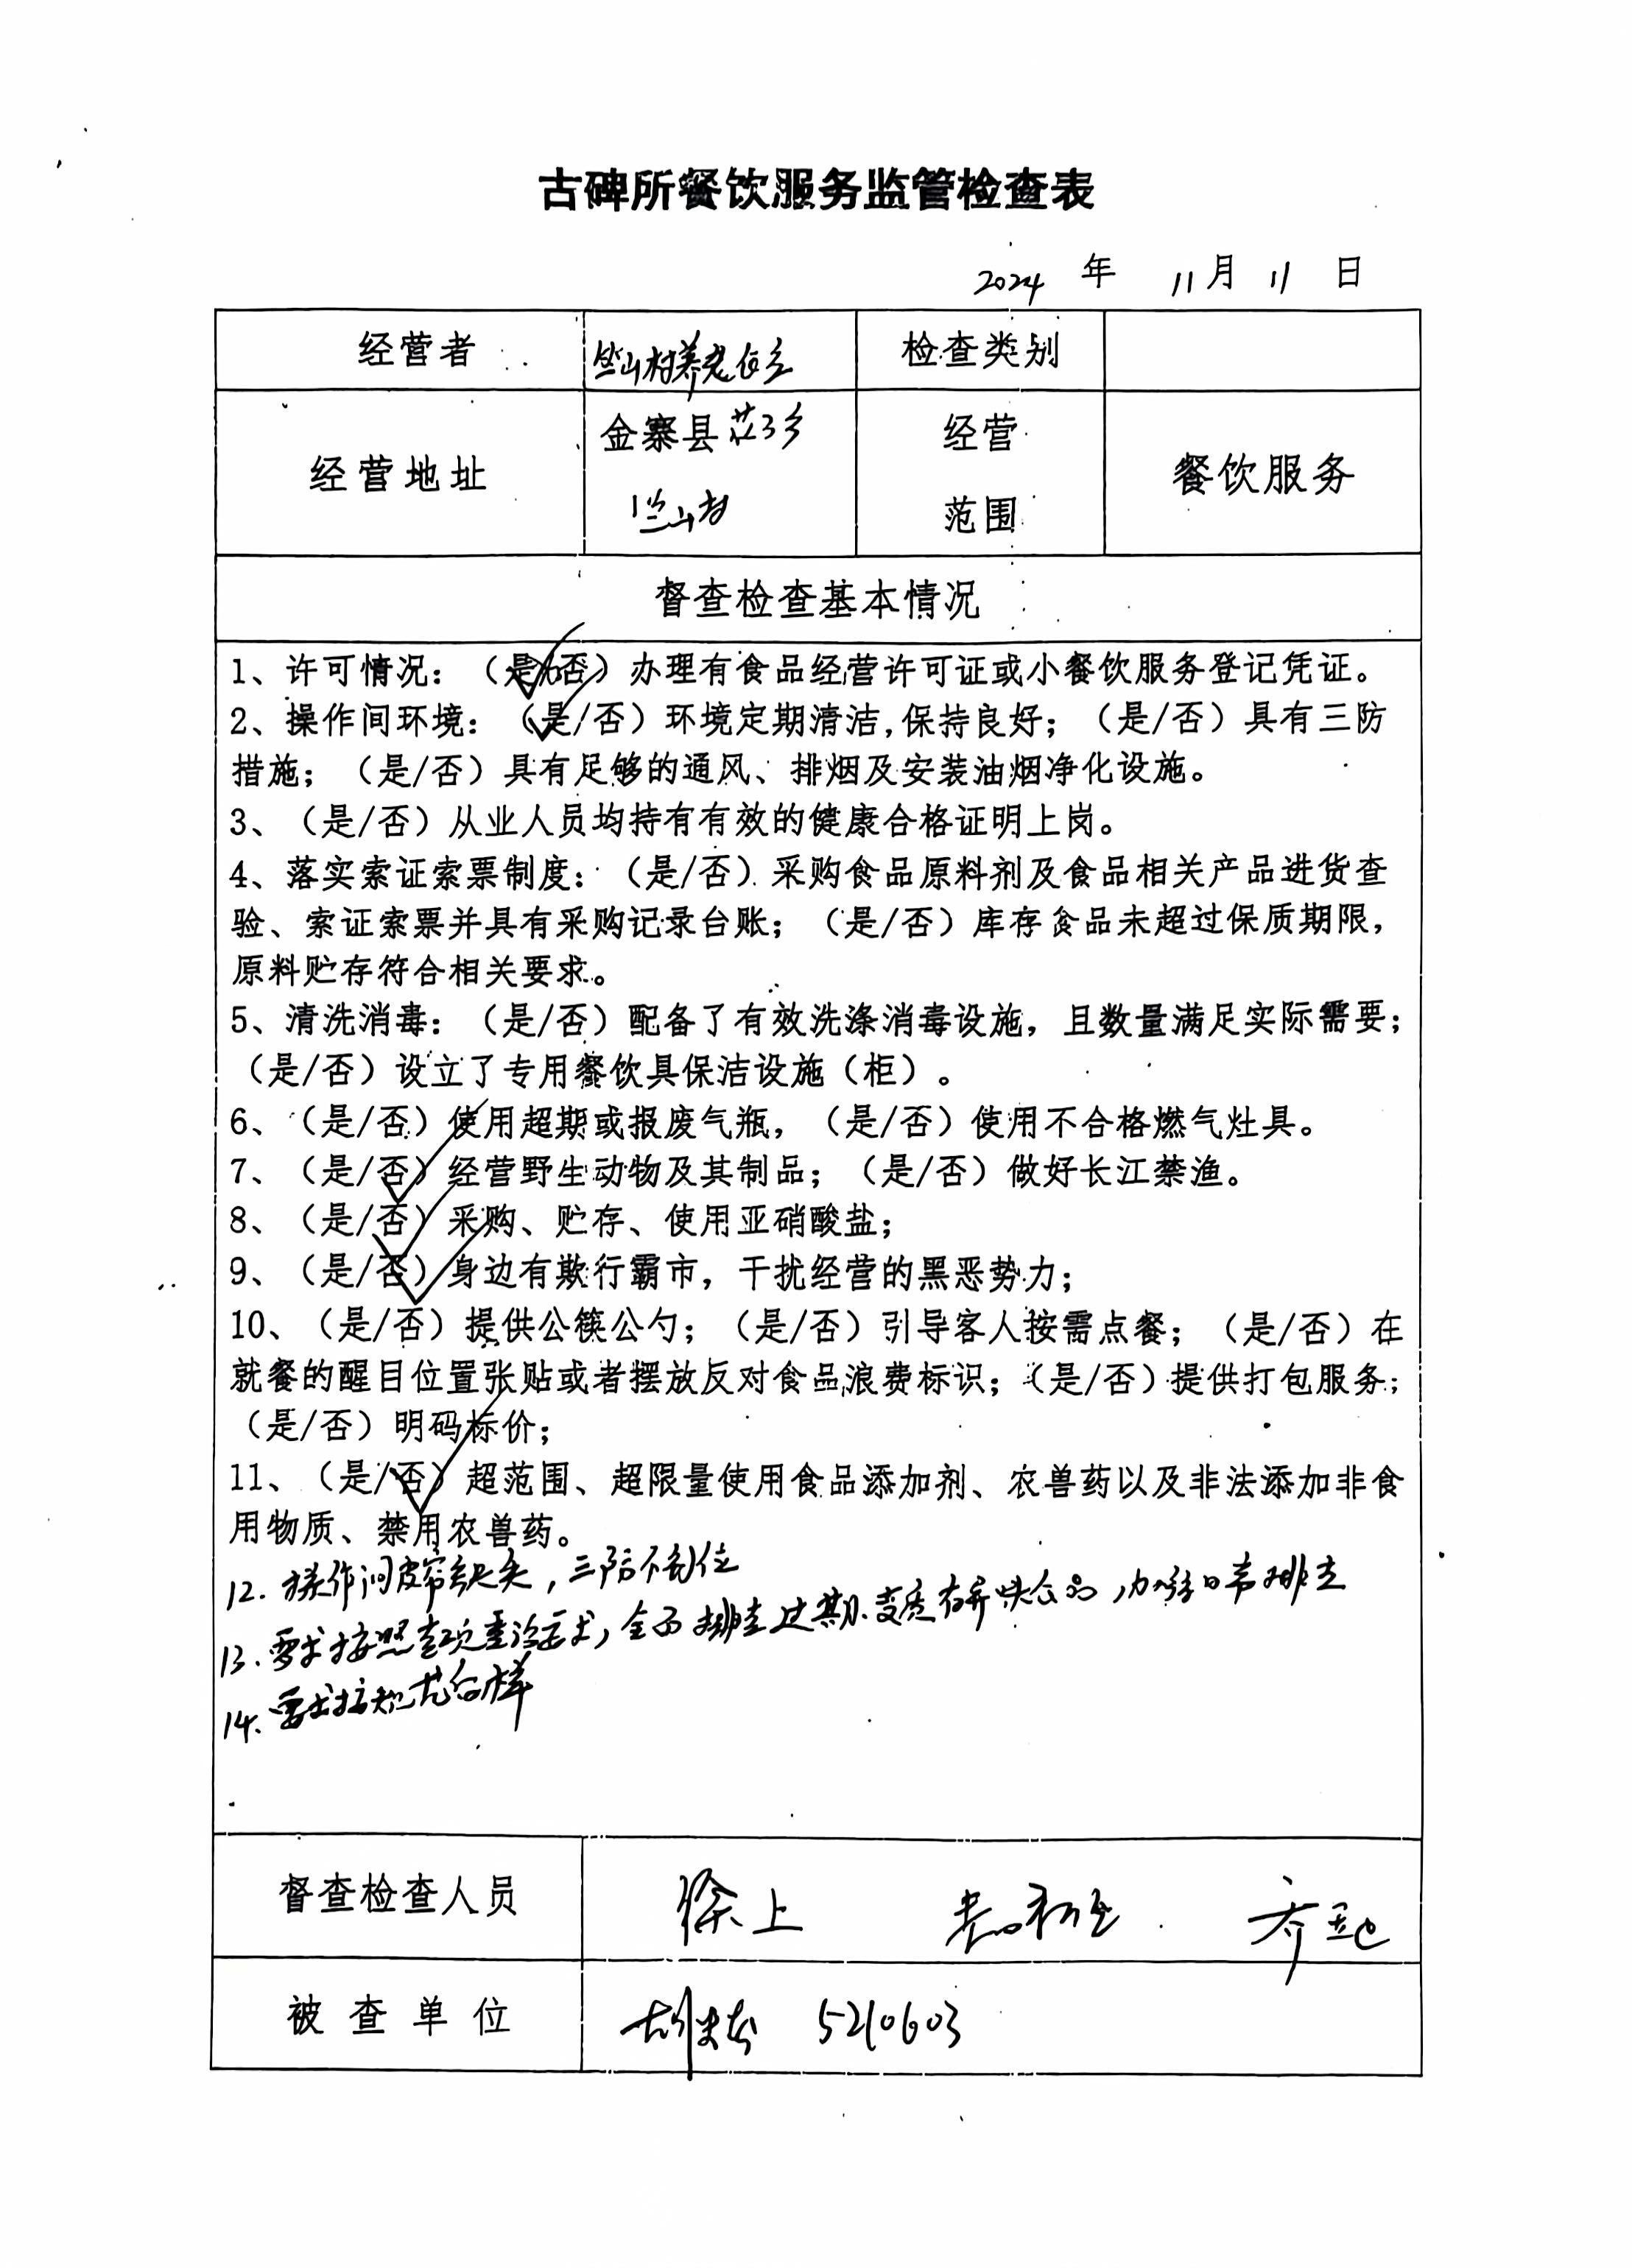 古碑所餐饮服务监管检查表
2024 年 11月 11 日
经营者 竺山村养老 检查类别
经营地址 金寨县 竺山村 经营范围 餐饮服务
督查检查基本情况
1、许可情况：（是/否）办理有食品经营许可证或小餐饮服务登记凭证。
2、操作间环境：（是/否）环境定期清洁,保持良好；（是/否）具有三防
措施；（是/否）具有足够的通风、排烟及安装油烟净化设施。
3、（是/否）从业人员均持有有效的健康合格证明上岗。
4、落实索证索票制度：（是/否）采购食品原料剂及食品相关产品进货查
验、索证索票并具有采购记录台账；（是/否）库存食品未超过保质期限，
原料贮存符合相关要求。
5、清洗消毒：（是/否）配备了有效洗涤消毒设施，且数量满足实际需要；
（是/否）设立了专用餐饮具保洁设施（柜）。
6、（是/否）使用超期或报废气瓶，（是/否）使用不合格燃气灶具。
7、（是/否）经营野生动物及其制品；（是/否）做好长江禁渔。
8、（是/否）采购、贮存、使用亚硝酸盐；
9、（是/否）身边有欺行霸市，干扰经营的黑恶势力；
10、（是/否）提供公筷公勺；（是/否）引导客人按需点餐；（是/否）在
就餐的醒目位置张贴或者摆放反对食品浪费标识；（是/否）提供打包服务；
（是/否）明码标价；
11、（是/否）超范围、超限量使用食品添加剂、农兽药以及非法添加非食
用物质、禁用农兽药。
12. 操作间皮帘缺失，三防不到位
13. 要求按照专项整治要求，全面排查过期、变质有异味食品，加强日常排查
14. 要求按规范留样
督查检查人员 徐上
被查单位 5210603